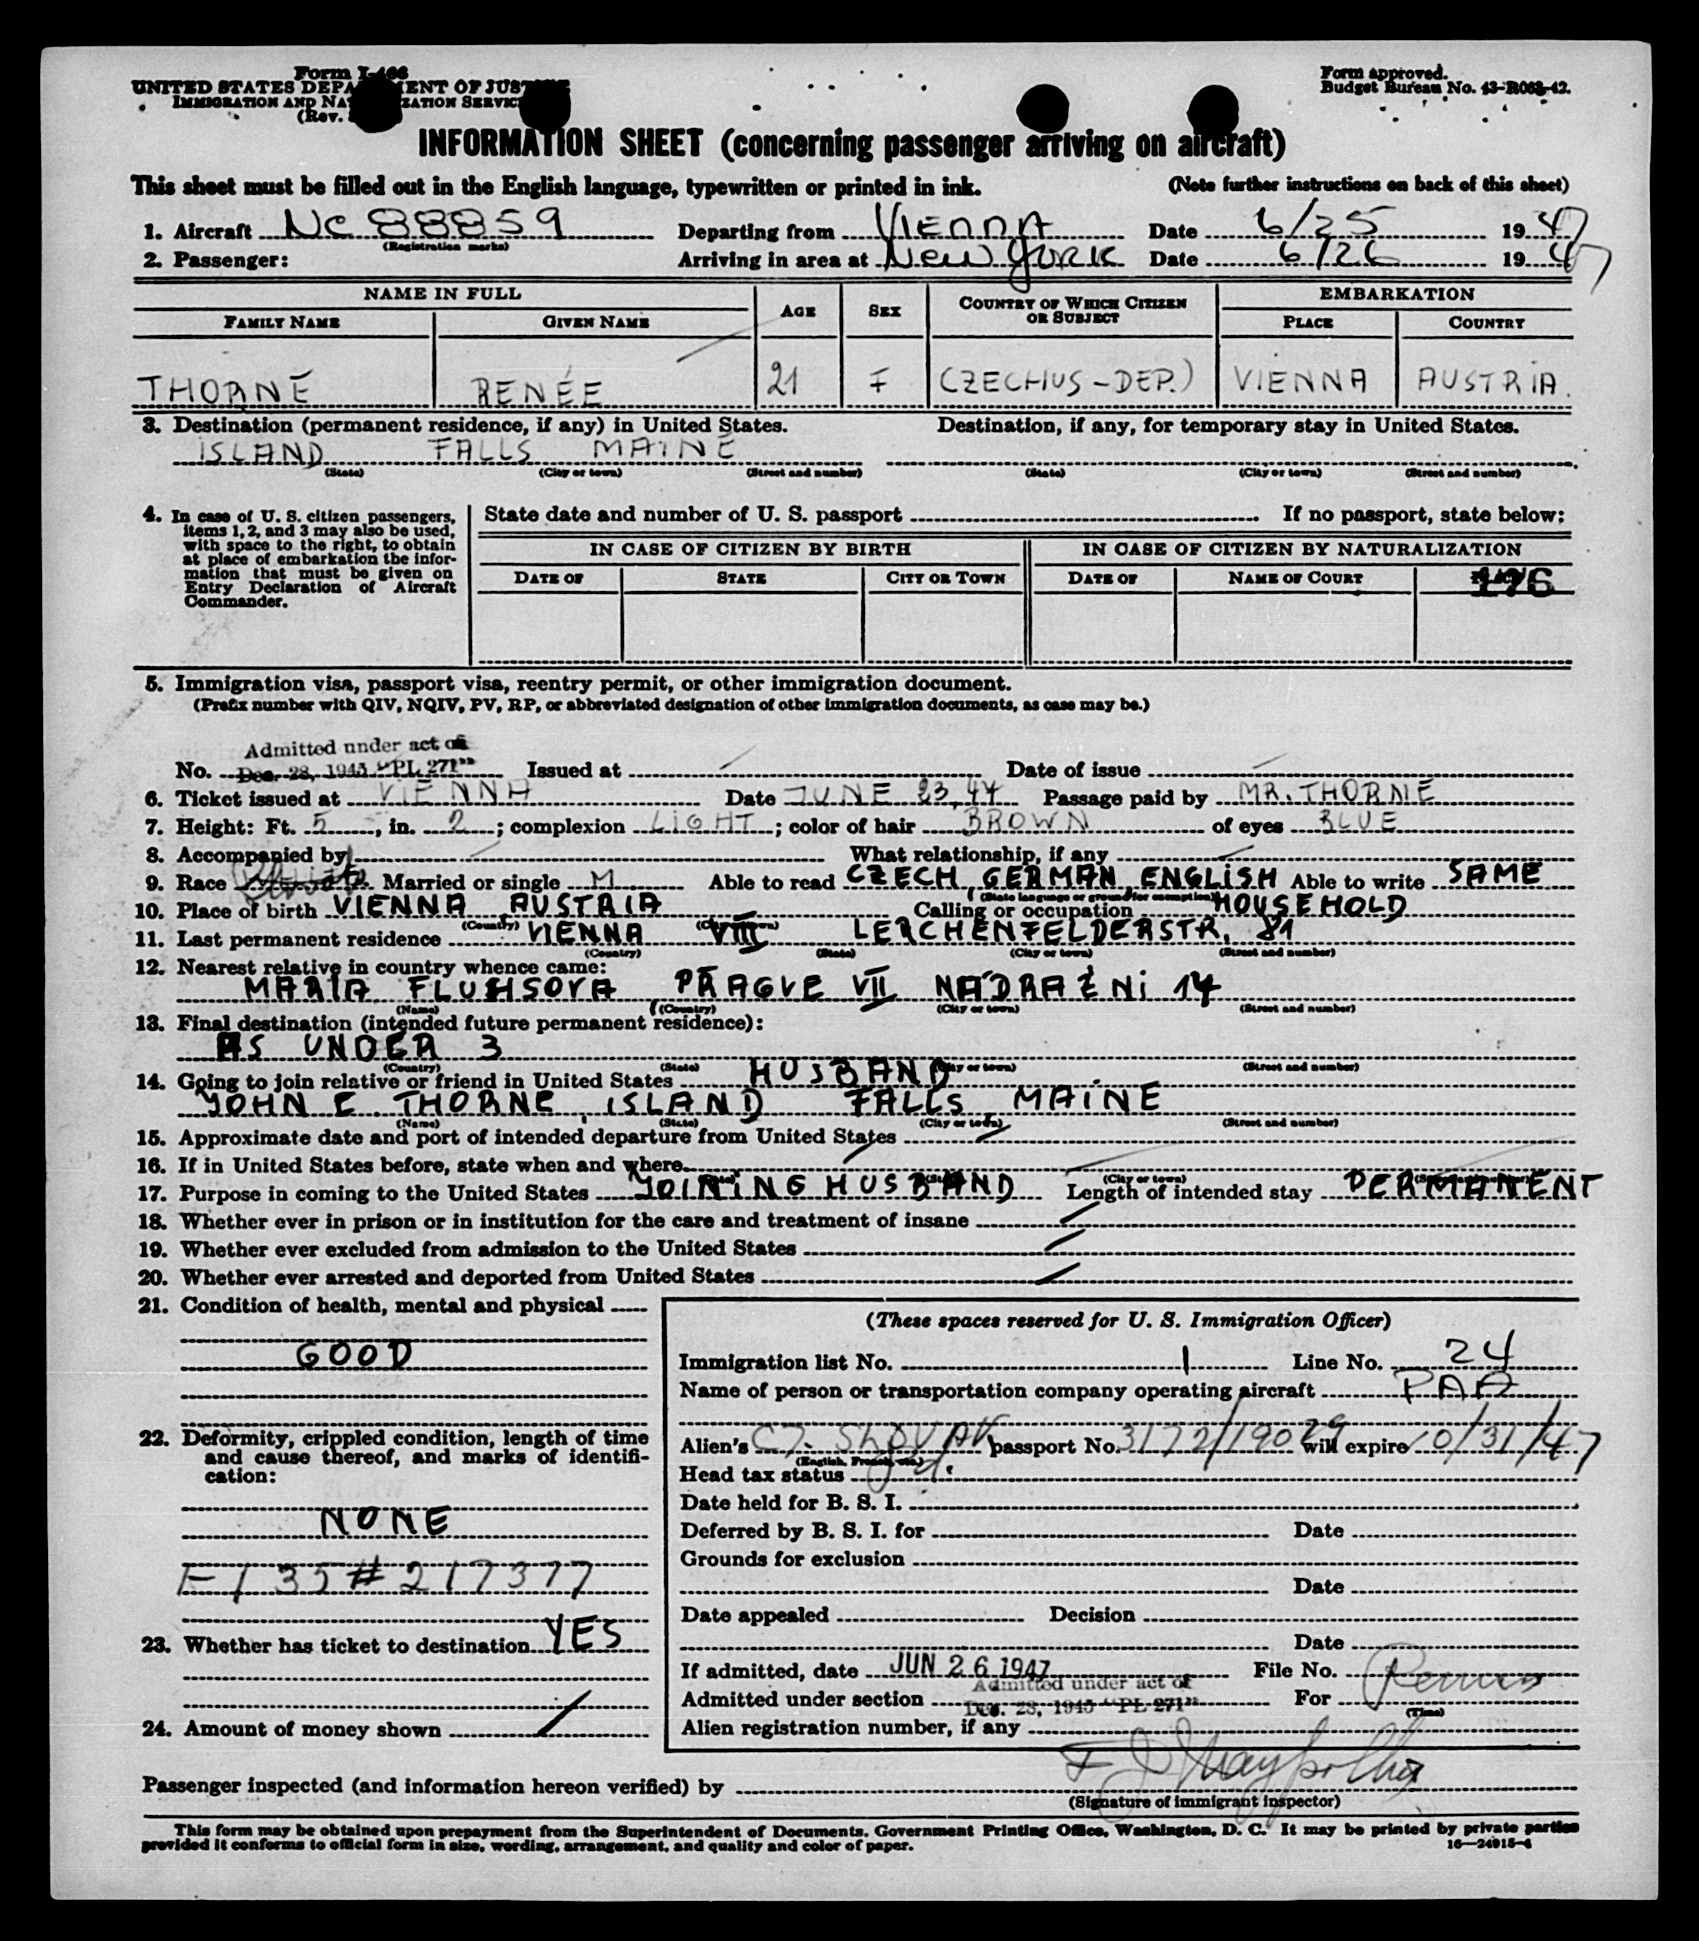 Form I-466
UNITED STATES DEPARTMENT OF JUSTICE
IMMIGRATION AND NATURALIZATION SERVICE
(Rev.
Form approved.
Budget Bureau No. 43-R063-42.
INFORMATION SHEET (concerning passenger arriving on aircraft)
This sheet must be filled out in the English language, typewritten or printed in ink. (Note further instructions on back of this sheet)
1. Aircraft NC 88859 Departing from VIENNA Date 6/25 1947
(Registration marks)
2. Passenger: Arriving in area at NEW YORK Date 6/26 1947
NAME IN FULL AGE SEX COUNTRY OF WHICH CITIZEN OR SUBJECT EMBARKATION
FAMILY NAME GIVEN NAME PLACE COUNTRY
THORNE RENÉE 21 F (CZECHUS-DEP.) VIENNA AUSTRIA.
3. Destination (permanent residence, if any) in United States. Destination, if any, for temporary stay in United States.
ISLAND FALLS MAINE
(State) (City or town) (Street and number) (State) (City or town) (Street and number)
4. In case of U. S. citizen passengers, items 1, 2, and 3 may also be used, with space to the right, to obtain at place of embarkation the information that must be given on Entry Declaration of Aircraft Commander.
State date and number of U. S. passport If no passport, state below:
IN CASE OF CITIZEN BY BIRTH IN CASE OF CITIZEN BY NATURALIZATION
DATE OF STATE CITY OR TOWN DATE OF NAME OF COURT 176
5. Immigration visa, passport visa, reentry permit, or other immigration document.
(Prefix number with QIV, NQIV, PV, RP, or abbreviated designation of other immigration documents, as case may be.)
Admitted under act of
No. Dec. 28, 1945 "PL 271" Issued at Date of issue
6. Ticket issued at VIENNA Date JUNE 23, 47 Passage paid by MR. THORNE
7. Height: Ft. 5, in. 2; complexion LIGHT; color of hair BROWN of eyes BLUE
8. Accompanied by What relationship, if any
9. Race White Married or single M Able to read CZECH, GERMAN, ENGLISH Able to write SAME
(State language or ground for exemption)
10. Place of birth VIENNA AUSTRIA Calling or occupation HOUSEHOLD
(Country) (City or town)
11. Last permanent residence VIENNA VIII LERCHENFELDERSTR. 81
(Country) (State) (City or town) (Street and number)
12. Nearest relative in country whence came:
MARIA FLUHSOVA PRAGUE VII NÁDRAŽNI 14
(Name) (Country) (City or town) (Street and number)
13. Final destination (intended future permanent residence):
AS UNDER 3
(Country) (State) (City or town) (Street and number)
14. Going to join relative or friend in United States HUSBAND
JOHN E THORNE, ISLAND FALLS, MAINE
(Name) (State) (City or town) (Street and number)
15. Approximate date and port of intended departure from United States
16. If in United States before, state when and where
(City or town)
17. Purpose in coming to the United States JOINING HUSBAND Length of intended stay PERMANENT
18. Whether ever in prison or in institution for the care and treatment of insane
19. Whether ever excluded from admission to the United States
20. Whether ever arrested and deported from United States
21. Condition of health, mental and physical
GOOD
22. Deformity, crippled condition, length of time and cause thereof, and marks of identification:
NONE
F I 35 # 217377
23. Whether has ticket to destination YES
24. Amount of money shown
(These spaces reserved for U. S. Immigration Officer)
Immigration list No. 1 Line No. 24
Name of person or transportation company operating aircraft PAA
Alien's CZ. SLOVAK passport No. 3172/19029 will expire 10/31/47
(English, French, etc.)
Head tax status
Date held for B. S. I.
Deferred by B. S. I. for Date
Grounds for exclusion
Date
Date appealed Decision
Date
If admitted, date JUN 26 1947 File No.
Admitted under act of
Admitted under section Dec. 28, 1945 "PL 271" For
(Time)
Alien registration number, if any
Passenger inspected (and information hereon verified) by
(Signature of immigrant inspector)
This form may be obtained upon prepayment from the Superintendent of Documents, Government Printing Office, Washington, D. C. It may be printed by private parties
provided it conforms to official form in size, wording, arrangement, and quality and color of paper. 16—24918-4